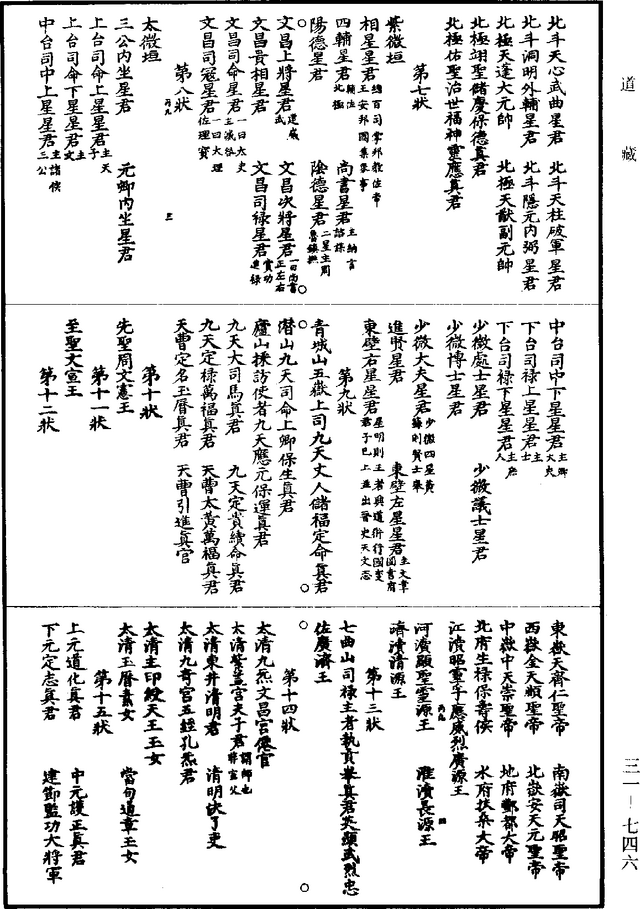 道藏
北斗天心武曲星君　北斗天柱破軍星君
北斗洞明外輔星君　北斗隱元內弼星君
北極天蓬大元帥　北極天猷副元帥
北極翊聖儲慶保德真君
北極佑聖治世福神靈應真君
第七狀
紫微垣
相星星君總百司掌邦教佐帝王安邦國集衆事
四輔星君輔佐北極　尚書星君主納言諮謀
陽德星君　陰德星君二星主周急賑撫
文昌上將星君建威武　文昌次將星君一曰尚書正左右
文昌貴相星君　文昌司祿星君賞功進祿
文昌司命星君一曰太史主滅咎
文昌司寇星君一曰大理佐理寶
第八狀
太微垣
三公內坐星君　元卿內坐星君
上台司命上星星君主天子
上台司命下星星君主女
中台司中上星星君主諸侯三公
中台司中下星星君主卿大夫
下台司祿上星星君主士
下台司祿下星星君主庶人
少微處士星君　少微議士星君
少微博士星君
少微大夫星君少微四星黃潤則賢士舉
進賢星君　東壁左星星君主文章圖書府
東壁右星星君星明則王者興道術行國多君子已上並出晉史天文志
第九狀
青城山五嶽上司九天丈人儲福定命真君
潛山九天司命上卿保生真君
廬山採訪使者九天應元保運真君
九天大司馬真君　九天定賞續命真君
九天定祿萬福真君　天曹太黃萬福真君
天曹定名玉曆真君　天曹引進真官
第十狀
先聖周文憲王
第十一狀
至聖文宣王
第十二狀
東嶽天齊仁聖帝　南嶽司天昭聖帝
西嶽金天順聖帝　北嶽安天元聖帝
中嶽中天崇聖帝　地府酆都大帝
北府生祿保壽侯　水府扶桑大帝
江瀆昭靈孚應威烈廣源王
河瀆顯聖靈源王　淮瀆長源王
濟瀆清源王
第十三狀
七曲山司祿主者執貢舉真君英顯武烈忠
佐廣濟王
第十四狀
太清九炁文昌宮僊官
太清紫蓋宮夫子君謂師也非官父
太清東井清明君　清明訣了吏
太清九奇宮五經孔炁君
太清主印綬天王玉女
太清玉曆素女　當旬道章玉女
第十五狀
上元道化真君　中元護正真君
下元定志真君　建節監功大將軍
三一—七四六